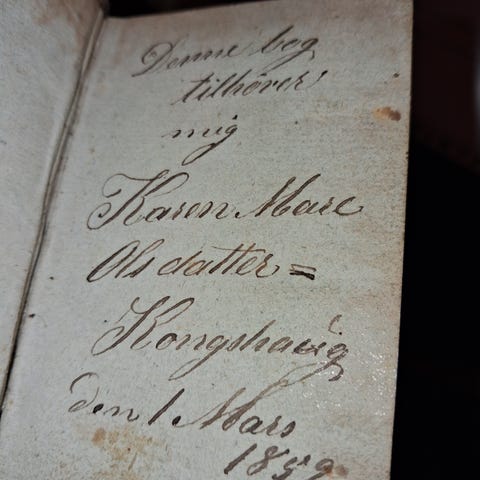 Denne bog
tilhører
mig
Karen Mare
Olsdatter =
Kongshaug
den 1 Mars
1859